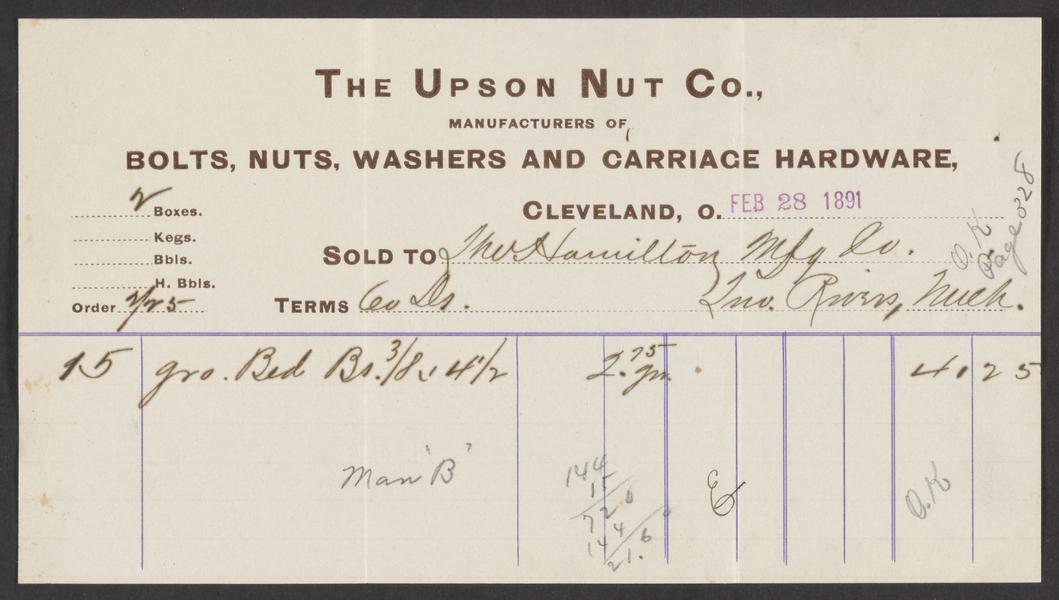 THE UPSON NUT CO.,
MANUFACTURERS OF
BOLTS, NUTS, WASHERS AND CARRIAGE HARDWARE,
2 Boxes.
CLEVELAND, O. FEB 28 1891
Kegs.
Bbls.
SOLD TO The Hamilton Mfg Co.
O.K
Page 328
H. Bbls.
Order 2/25
TERMS 60 Ds.
Two Rivers,
15 gro. Bed Bs. 3/8 x 4 1/2 2.75 gr. 41.25
Man "B"
144
15
720
144
21.60
E
O.K